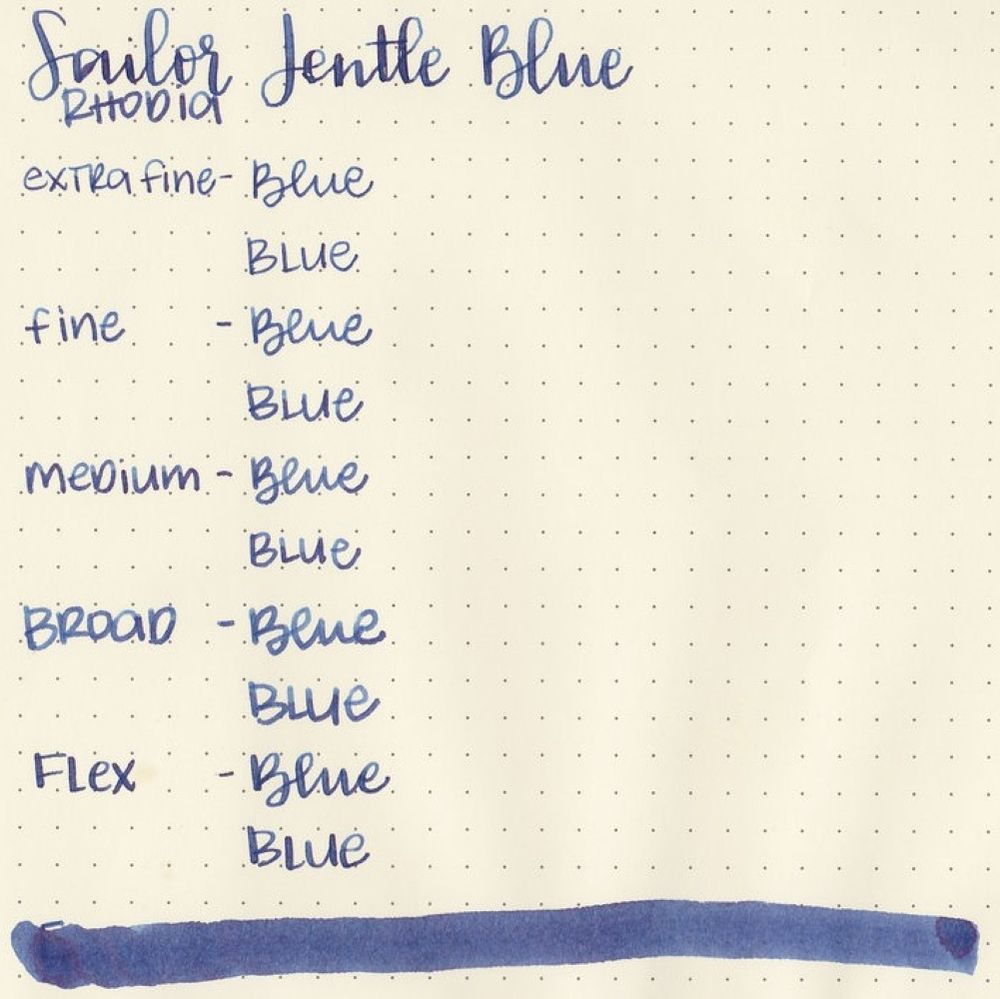 Sailor Jentle Blue
RHODIA
extra fine - Blue
BLUE
fine - Blue
BLUE
medium - Blue
BLUE
BROAD - Blue
BLUE
FLex - Blue
BLUE